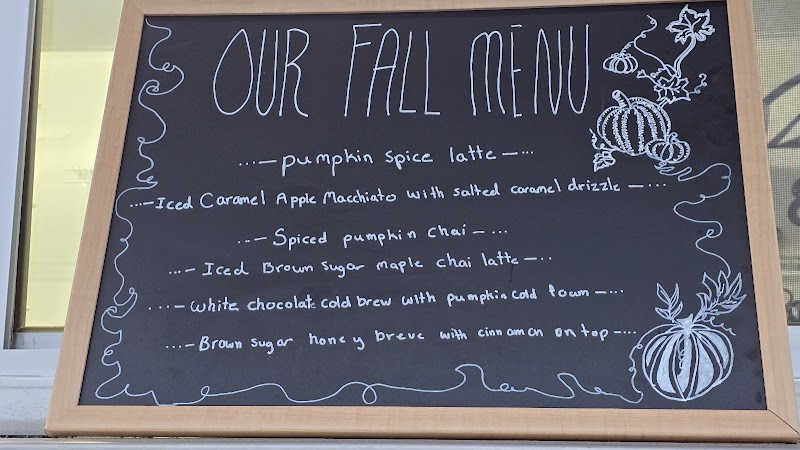 OUR FALL MENU
...—pumpkin spice latte—...
...—Iced Caramel Apple Macchiato with salted caramel drizzle—...
..—Spiced pumpkin chai—...
...—Iced Brown sugar maple chai latte—..
...—white chocolate cold brew with pumpkin cold foam—...
...—Brown sugar honey breve with cinnamon on top—...